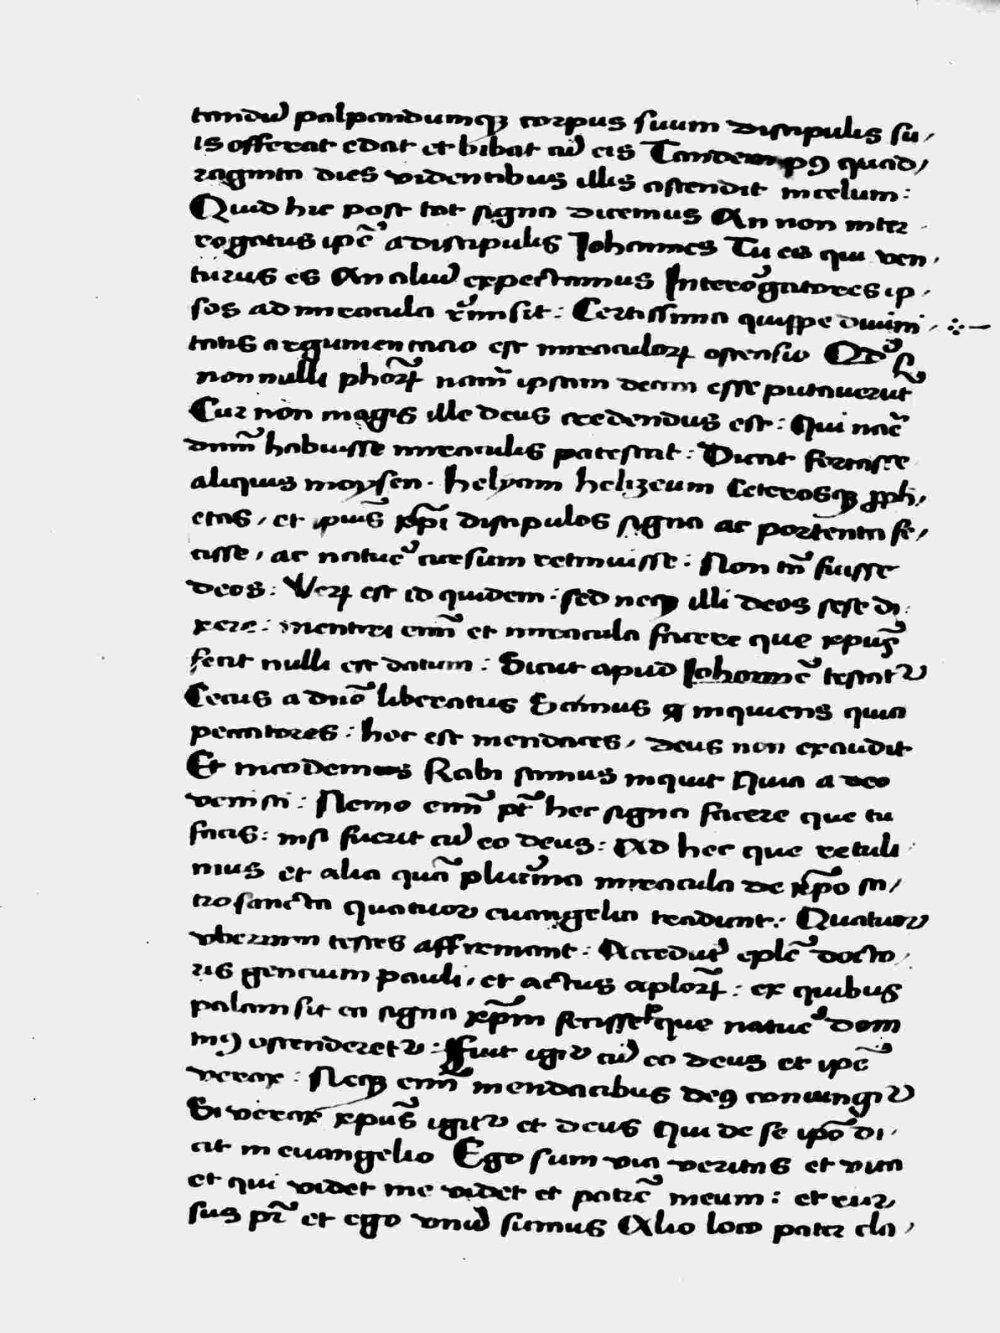 tandũ palpandumqꝫ corpus suum discipulis su,
is offerat edat et bibat cũ eis Tandem pꝰ quad,
raginta dies videntibus illis ascendit incelum:
Quid hic post tot signa dicemus An non inter
rogatus ip̃e adiscipulis Johannes Tu es qui ven,
turus es An aliũ expectamus Interrogatores ip,
sos ad miracula remisit: Certissima quippe diuini,
tatis argumentacio est miraculoꝝ ostensio Qd̓ si
non nulli phoꝝ nam̃ ipsam deam esse putauerũt
Cur non magis ille deus credendus est: Qui nac̃
dnm̃ habuisse miraculis patescit: Dicat fortasse
aliquis moysen. helyam helizeum Ceterosqꝫ ꝓph,
etas, et ipius̃ xp̃i discipulos signa ac portenta fe,
cisse, ac natuc̃ cursum retinuisse: Non tñ fuisse
deos: Veꝝ est id quidem. sed neqꝫ illi deos sese di
xere: mentiri enĩ et miracula facere que xpus̃
fecit nulli est datum: Sicut apud Johannẽ testatᷣ
Cecus a dño liberatus Scimus ꝙ inquiens quia
peccatores: hoc est mendaces, deus non exaudit
Et nicodemus Rabi scimus inquit Quia a deo
venisti: Nemo enĩ pt̃ hec signa facere que tu
facis: nisi fuerit cũ eo deus: Ad hec que retuli
mus et alia quã plurima miracula de xp̃o sa,
crosancta quatuor euangelia tradunt: Quatuor
vberrimi testes affirmant: Accedũt eplẽ docto,
ris gencium pauli, et actus aploꝝ: ex quibus
palam sit ea signa xp̃m fecisse que natuc̃ dom
inũ ostenderetᷣ: Fuit igiᷣ cũ eo deus et ipẽ
verax: Neqꝫ enĩ mendacibus deꝰ coniungiᷣ
Si verax xpus̃ igitᷣ et deus Qui de se ip̃o di,
cit in euangelio Ego sum via veritas et vita
et qui videt me videt et patrẽ meum: et rur,
sus pr̃ et ego vnũ sumus Alio loco pater cla,